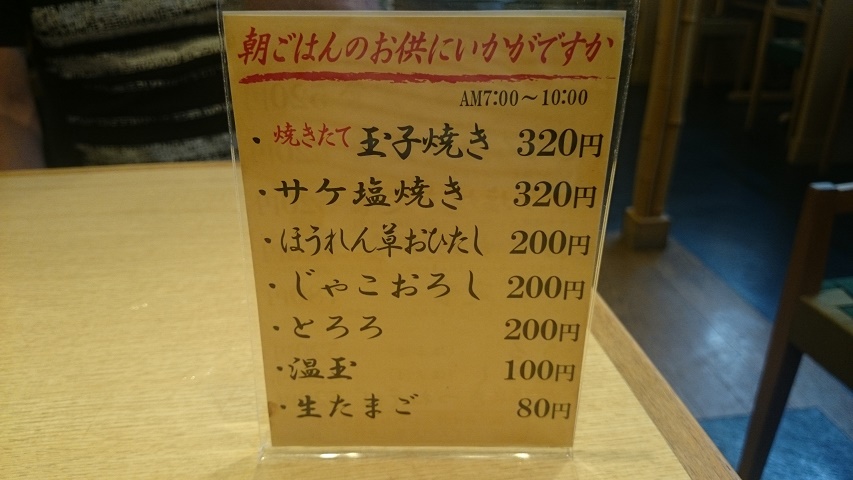 朝ごはんのお供にいかがですか
AM7:00～10:00
・焼きたて 玉子焼き 320円
・サケ塩焼き 320円
・ほうれん草おひたし 200円
・じゃこおろし 200円
・とろろ 200円
・温玉 100円
・生たまご 80円